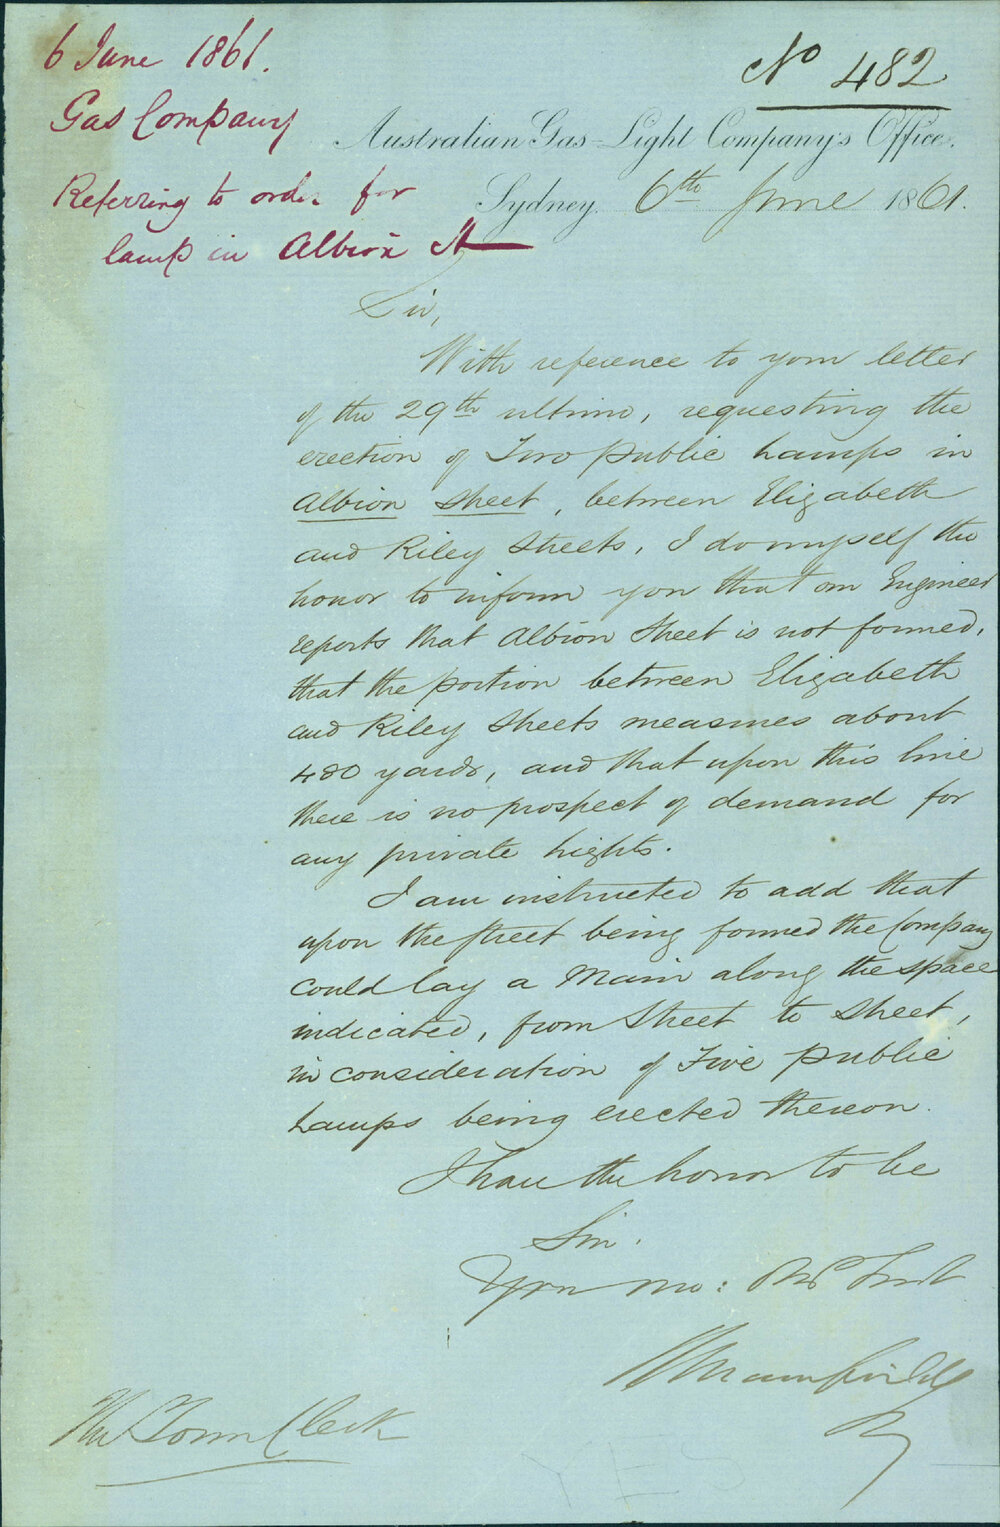 6 June 1861.
Gas Company
Referring to order for
lamp in Albion St
No 482
Australian Gas-Light Company's Office.
Sydney 6th June 1861.
Sir,
With reference to your letter
of the 29th ultimo, requesting the
erection of Two public Lamps in
Albion Street, between Elizabeth
and Riley Streets, I do myself the
honor to inform you that our Engineer
reports that Albion Street is not formed,
that the portion between Elizabeth
and Riley Streets measures about
480 yards, and that upon this line
there is no prospect of demand for
any private lights.
I am instructed to add that
upon the street being formed the Company
could lay a Main along the space
indicated, from Street to Street,
in consideration of Five public
Lamps being erected thereon.
I have the honor to be
Sir.
Your mo: Obt Servt
The Town Clerk
YES